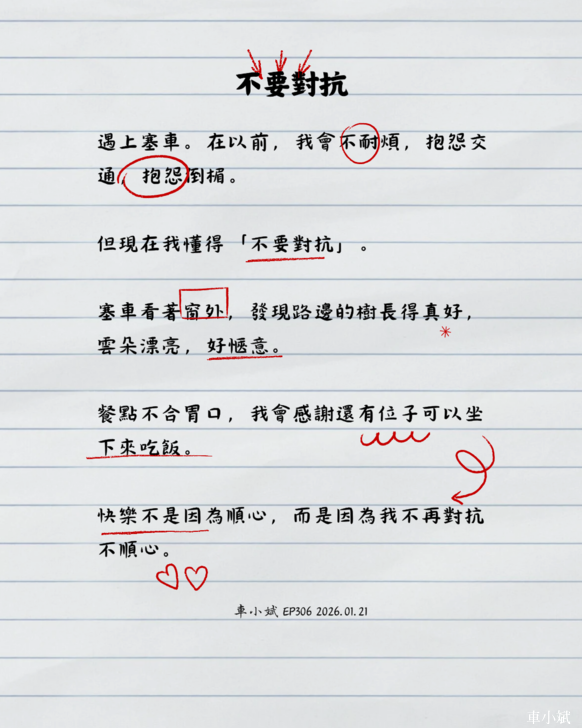 不要對抗
遇上塞車。在以前，我會不耐煩，抱怨交
通，抱怨倒楣。
但現在我懂得「不要對抗」。
塞車看著窗外，發現路邊的樹長得真好，
雲朵漂亮，好愜意。
餐點不合胃口，我會感謝還有位子可以坐
下來吃飯。
快樂不是因為順心，而是因為我不再對抗
不順心。
車小斌 EP306 2026.01.21
車小斌